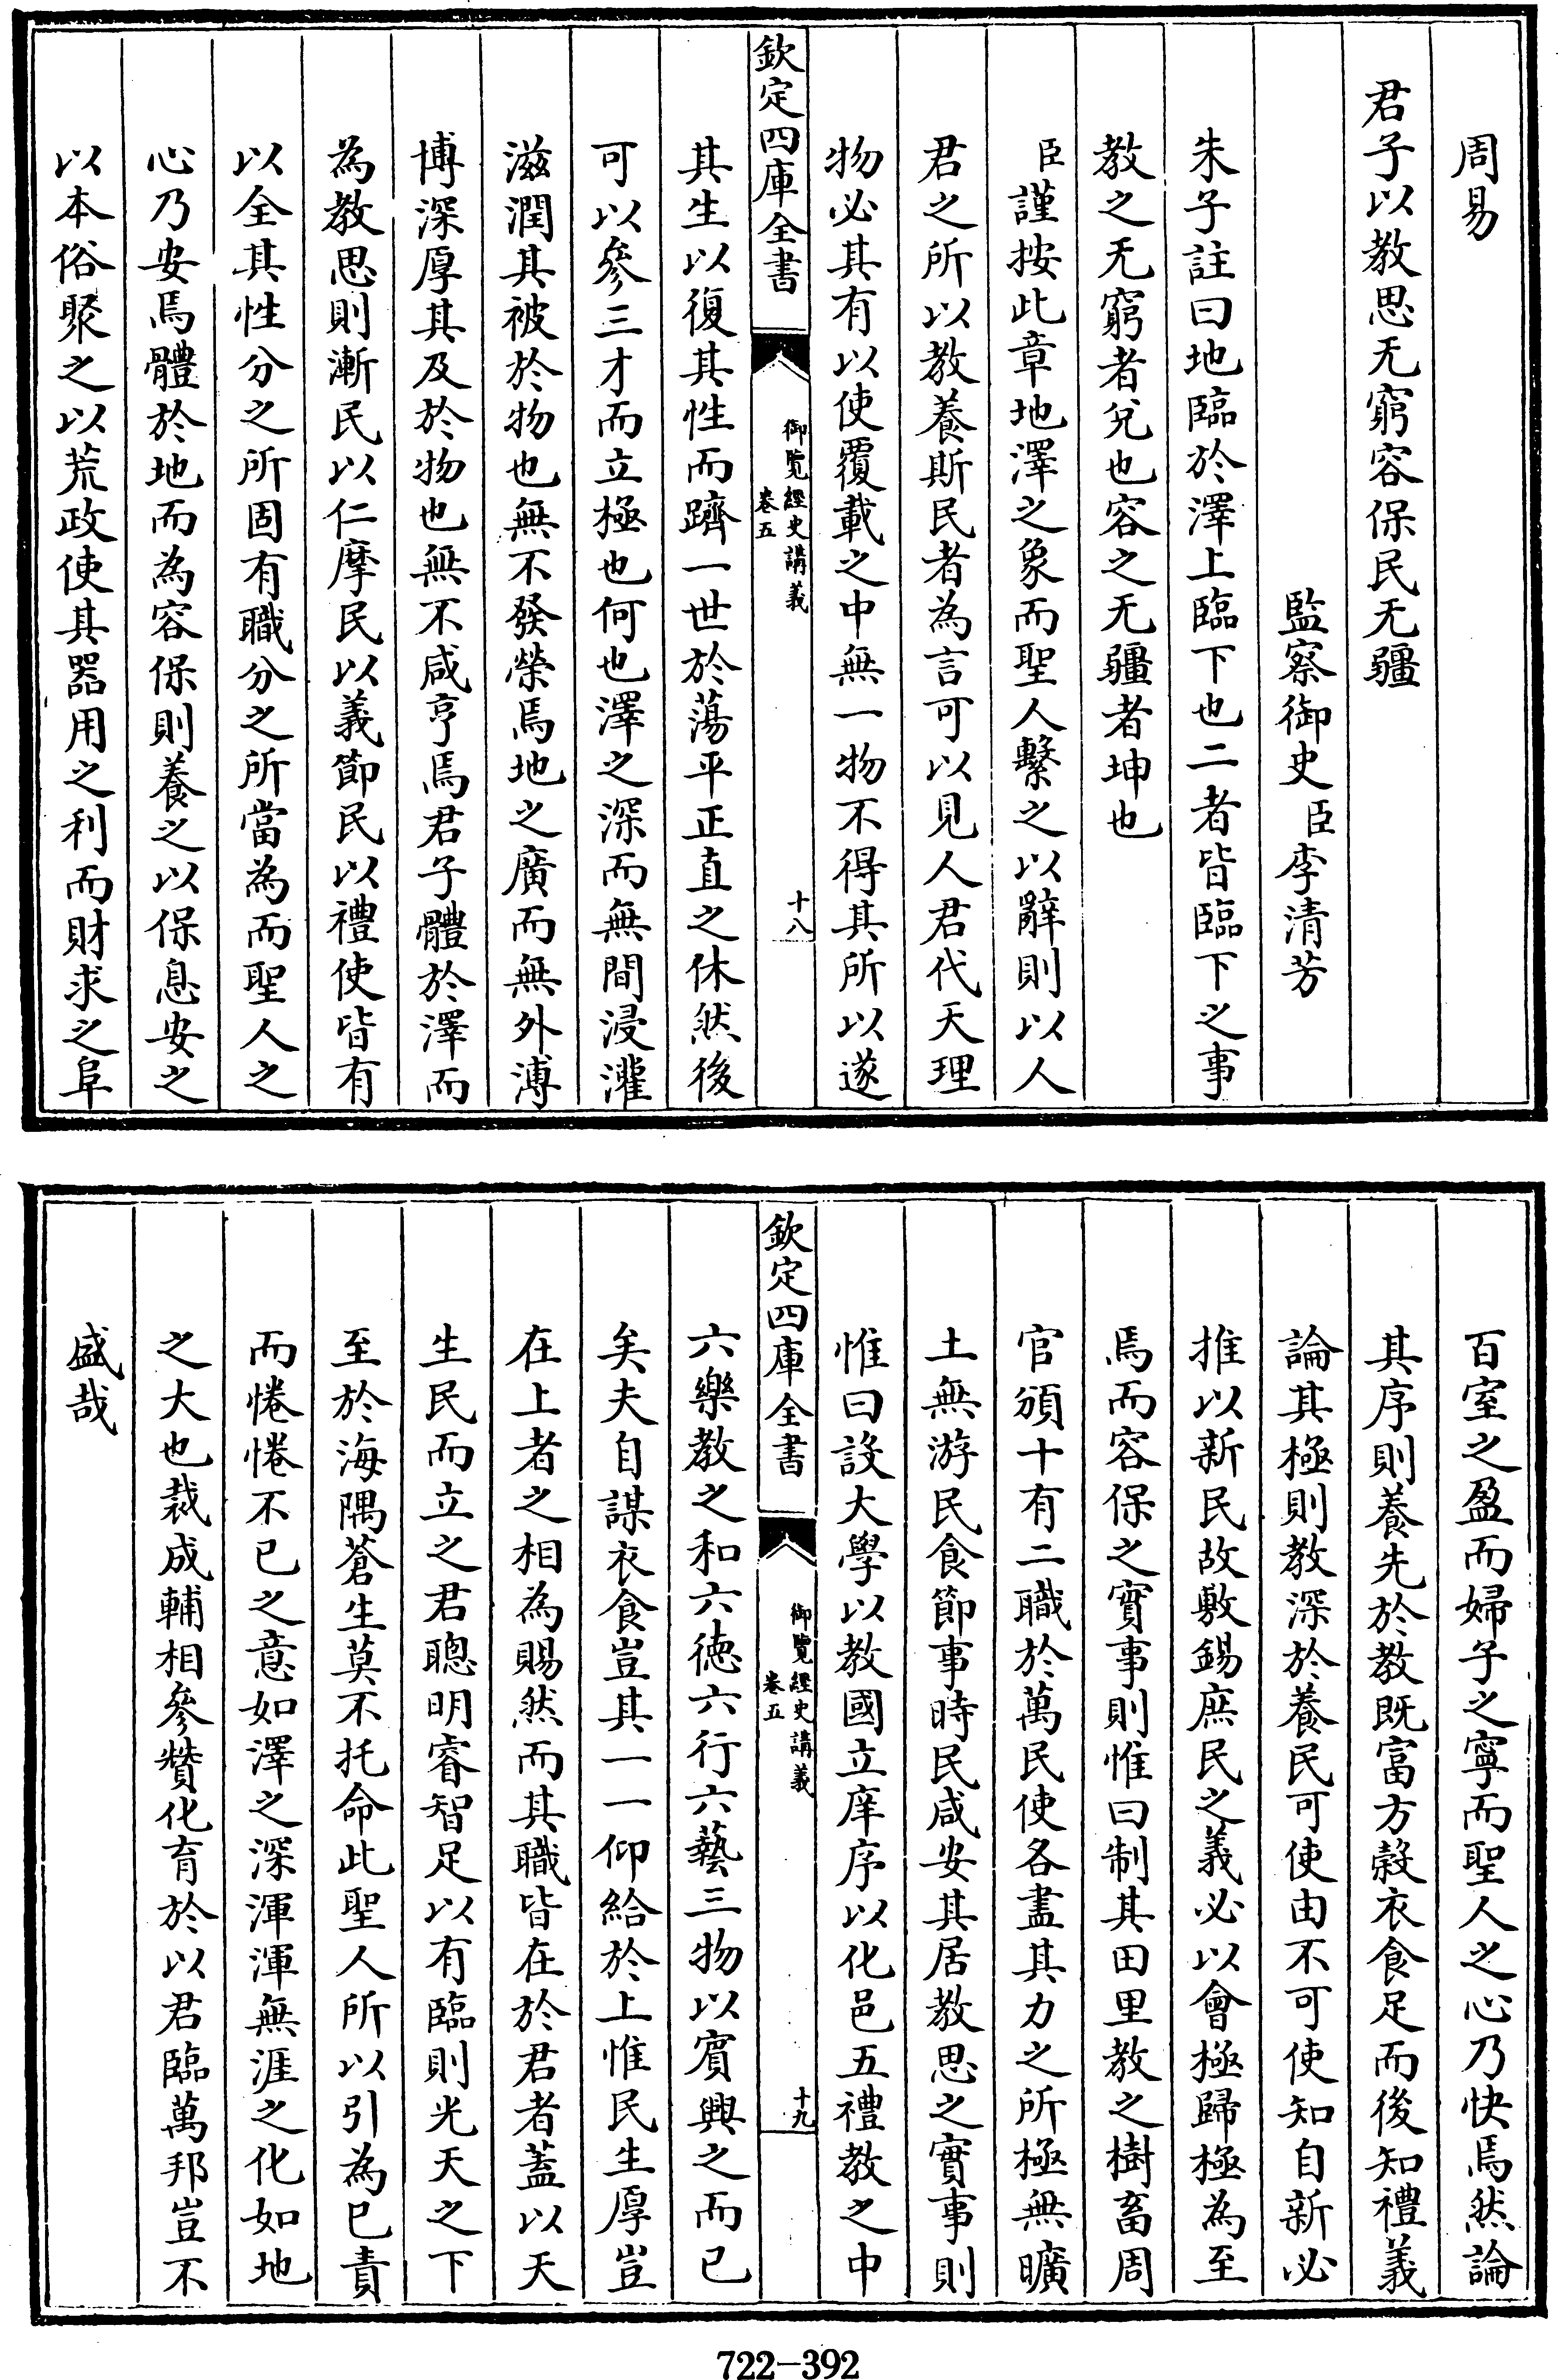 周易
君子以教思无窮容保民无疆
監察御史臣李清芳
朱子註曰地臨於澤上臨下也二者皆臨下之事
教之无窮者兌也容之无疆者坤也
臣謹按此章地澤之象而聖人繫之以辭則以人
君之所以教養斯民者為言可以見人君代天理
物必其有以使覆載之中無一物不得其所以遂
欽定四庫全書
御覽經史講義
卷五
十八
其生以復其性而躋一世於蕩平正直之休然後
可以參三才而立極也何也澤之深而無間浸灌
滋潤其被於物也無不發榮焉地之廣而無外溥
博深厚其及於物也無不咸亨焉君子體於澤而
為教思則漸民以仁摩民以義節民以禮使皆有
以全其性分之所固有職分之所當為而聖人之
心乃安焉體於地而為容保則養之以保息安之
以本俗聚之以荒政使其器用之利而財求之阜
百室之盈而婦子之寧而聖人之心乃快焉然論
其序則養先於教既富方穀衣食足而後知禮義
論其極則教深於養民可使由不可使知自新必
推以新民故敷錫庶民之義必以會極歸極為至
焉而容保之實事則惟曰制其田里教之樹畜周
官頒十有二職於萬民使各盡其力之所極無曠
土無游民食節事時民咸安其居教思之實事則
惟曰設大學以教國立庠序以化邑五禮教之中
欽定四庫全書
御覽經史講義
卷五
十九
六樂教之和六德六行六藝三物以賓興之而已
矣夫自謀衣食豈其一一仰給於上惟民生厚豈
在上者之相為賜然而其職皆在於君者蓋以天
生民而立之君聰明睿智足以有臨則光天之下
至於海隅蒼生莫不托命此聖人所以引為已責
而惓惓不已之意如澤之深渾渾無涯之化如地
之大也裁成輔相參贊化育於以君臨萬邦豈不
盛哉
722-392